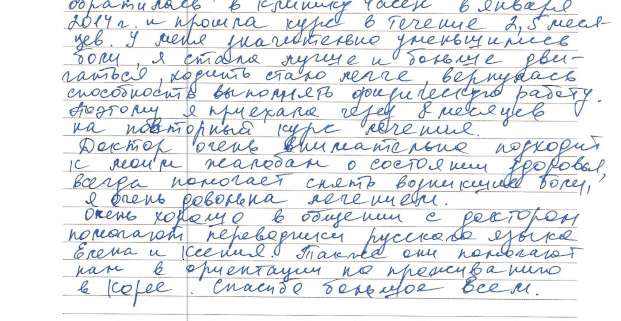 обратилась в клинику Часен в январе
2014 г. и прошла курс в течение 2,5 меся-
цев. У меня значительно уменьшились
боли, я стала лучше и больше дви-
гаться, ходить стало легче, вернулась
способность выполнять физическую работу.
Поэтому я приехала через 8 месяцев
на повторный курс лечения.
Доктор очень внимательно подходит
к моим жалобам о состоянии здоровья,
всегда помогает снять возникшие боли,
я очень довольна лечением.
Очень хорошо в общении с доктором
помогают переводчики русского языка
Елена и Ксения. Также они помогают
нам в ориентации по проживанию
в Корее. Спасибо большое всем.